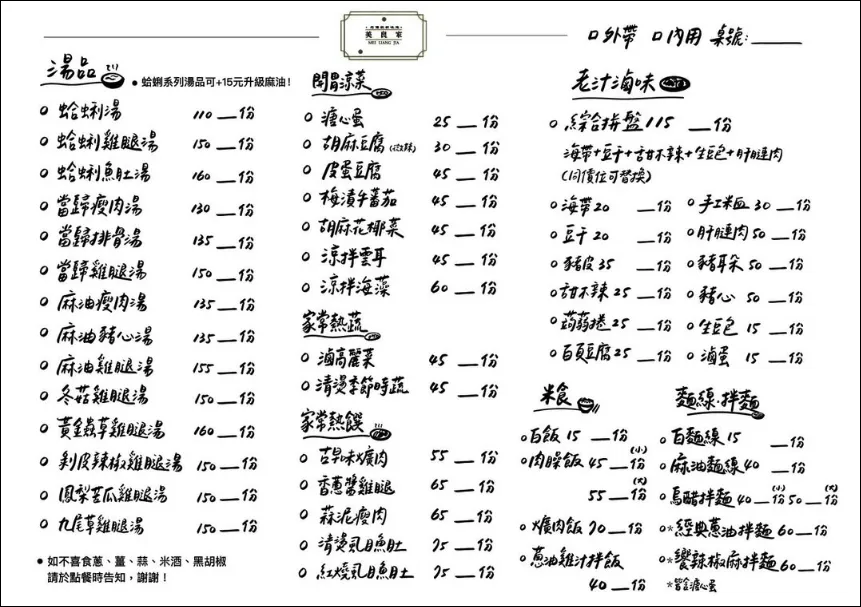 美良家
MEI LIANG JIA
口外帶 口內用 桌號:____
湯品
•蛤蜊系列湯品可+15元升級麻油!
蛤蜊湯 110 __份
蛤蜊雞腿湯 150 __份
蛤蜊魚肚湯 160 __份
當歸瘦肉湯 130 __份
當歸排骨湯 135 __份
當歸雞腿湯 150 __份
麻油瘦肉湯 135 __份
麻油豬心湯 135 __份
麻油雞腿湯 155 __份
冬菇雞腿湯 150 __份
黃金蟲草雞腿湯 160 __份
剝皮辣椒雞腿湯 150 __份
鳳梨苦瓜雞腿湯 150 __份
九尾草雞腿湯 150 __份
•如不喜食蔥、薑、蒜、米酒、黑胡椒
請於點餐時告知,謝謝!
開胃涼菜
溏心蛋 25 __份
胡麻豆腐(微辣) 30 __份
皮蛋豆腐 45 __份
梅漬牛番茄 45 __份
胡麻花椰菜 45 __份
涼拌雲耳 45 __份
涼拌海藻 60 __份
家常熱蔬
滷高麗菜 45 __份
清燙季節時蔬 45 __份
家常熱饌
古早味爌肉 55 __份
香蔥醬雞腿 65 __份
蒜泥瘦肉 65 __份
清燙虱目魚肚 75 __份
紅燒虱目魚肚 75 __份
老汁滷味
綜合拼盤 115 __份
海帶+豆干+甜不辣+生豆包+肝腱肉
(同價位可替換)
海帶 20 __份
豆干 20 __份
豬皮 35 __份
甜不辣 25 __份
蒟蒻捲 25 __份
百頁豆腐 25 __份
手工米血 30 __份
肝腱肉 50 __份
豬耳朵 50 __份
豬心 50 __份
生豆包 15 __份
滷蛋 15 __份
米食
白飯 15 __份
肉燥飯 45 __份(小)
55 __份(大)
爌肉飯 70 __份
蔥油雞汁拌飯
40 __份
麵線·拌麵
白麵線 15 __份
麻油麵線 40 __份
烏醋拌麵 40 __份(小) 50 __份(大)
*經典蔥油拌麵 60 __份
*嚮辣椒麻拌麵 60 __份
*皆含溏心蛋